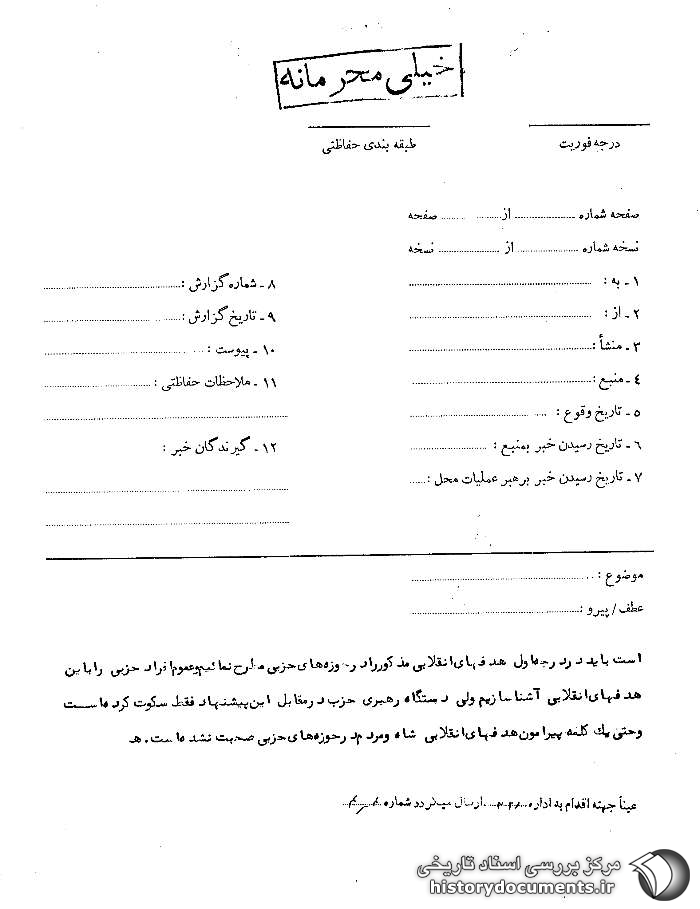 خیلی محرمانه
درجه فوریت
طبقه بندی حفاظتی
صفحه شماره ........ از ........ صفحه
نسخه شماره ........ از ........ نسخه
۱ - به :
۲ - از :
۳ - منشأ :
۴ - منبع :
۵ - تاریخ وقوع :
۶ - تاریخ رسیدن خبر بمنبع :
۷ - تاریخ رسیدن خبر برهبر عملیات محل :
۸ - شماره گزارش :
۹ - تاریخ گزارش :
۱۰ - پیوست :
۱۱ - ملاحظات حفاظتی :
۱۲ - گیرندگان خبر :
موضوع :
عطف / پیرو :
است باید در درجه اول هدفهای انقلابی مذکور را در حوزه های حزبی مطرح نمائیم و عموم افراد حزبی را با این
هدفهای انقلابی آشنا سازیم ولی دستگاه رهبری حزب در مقابل این پیشنهاد فقط سکوت کرده است
وحتی یک کلمه پیرامون هدفهای انقلابی شاه و مردم در حوزه های حزبی صحبت نشده است . هـ
عیناً جهته اقدام به اداره ارسال میگردد شماره
مرکز بررسی اسناد تاریخی
historydocuments.ir